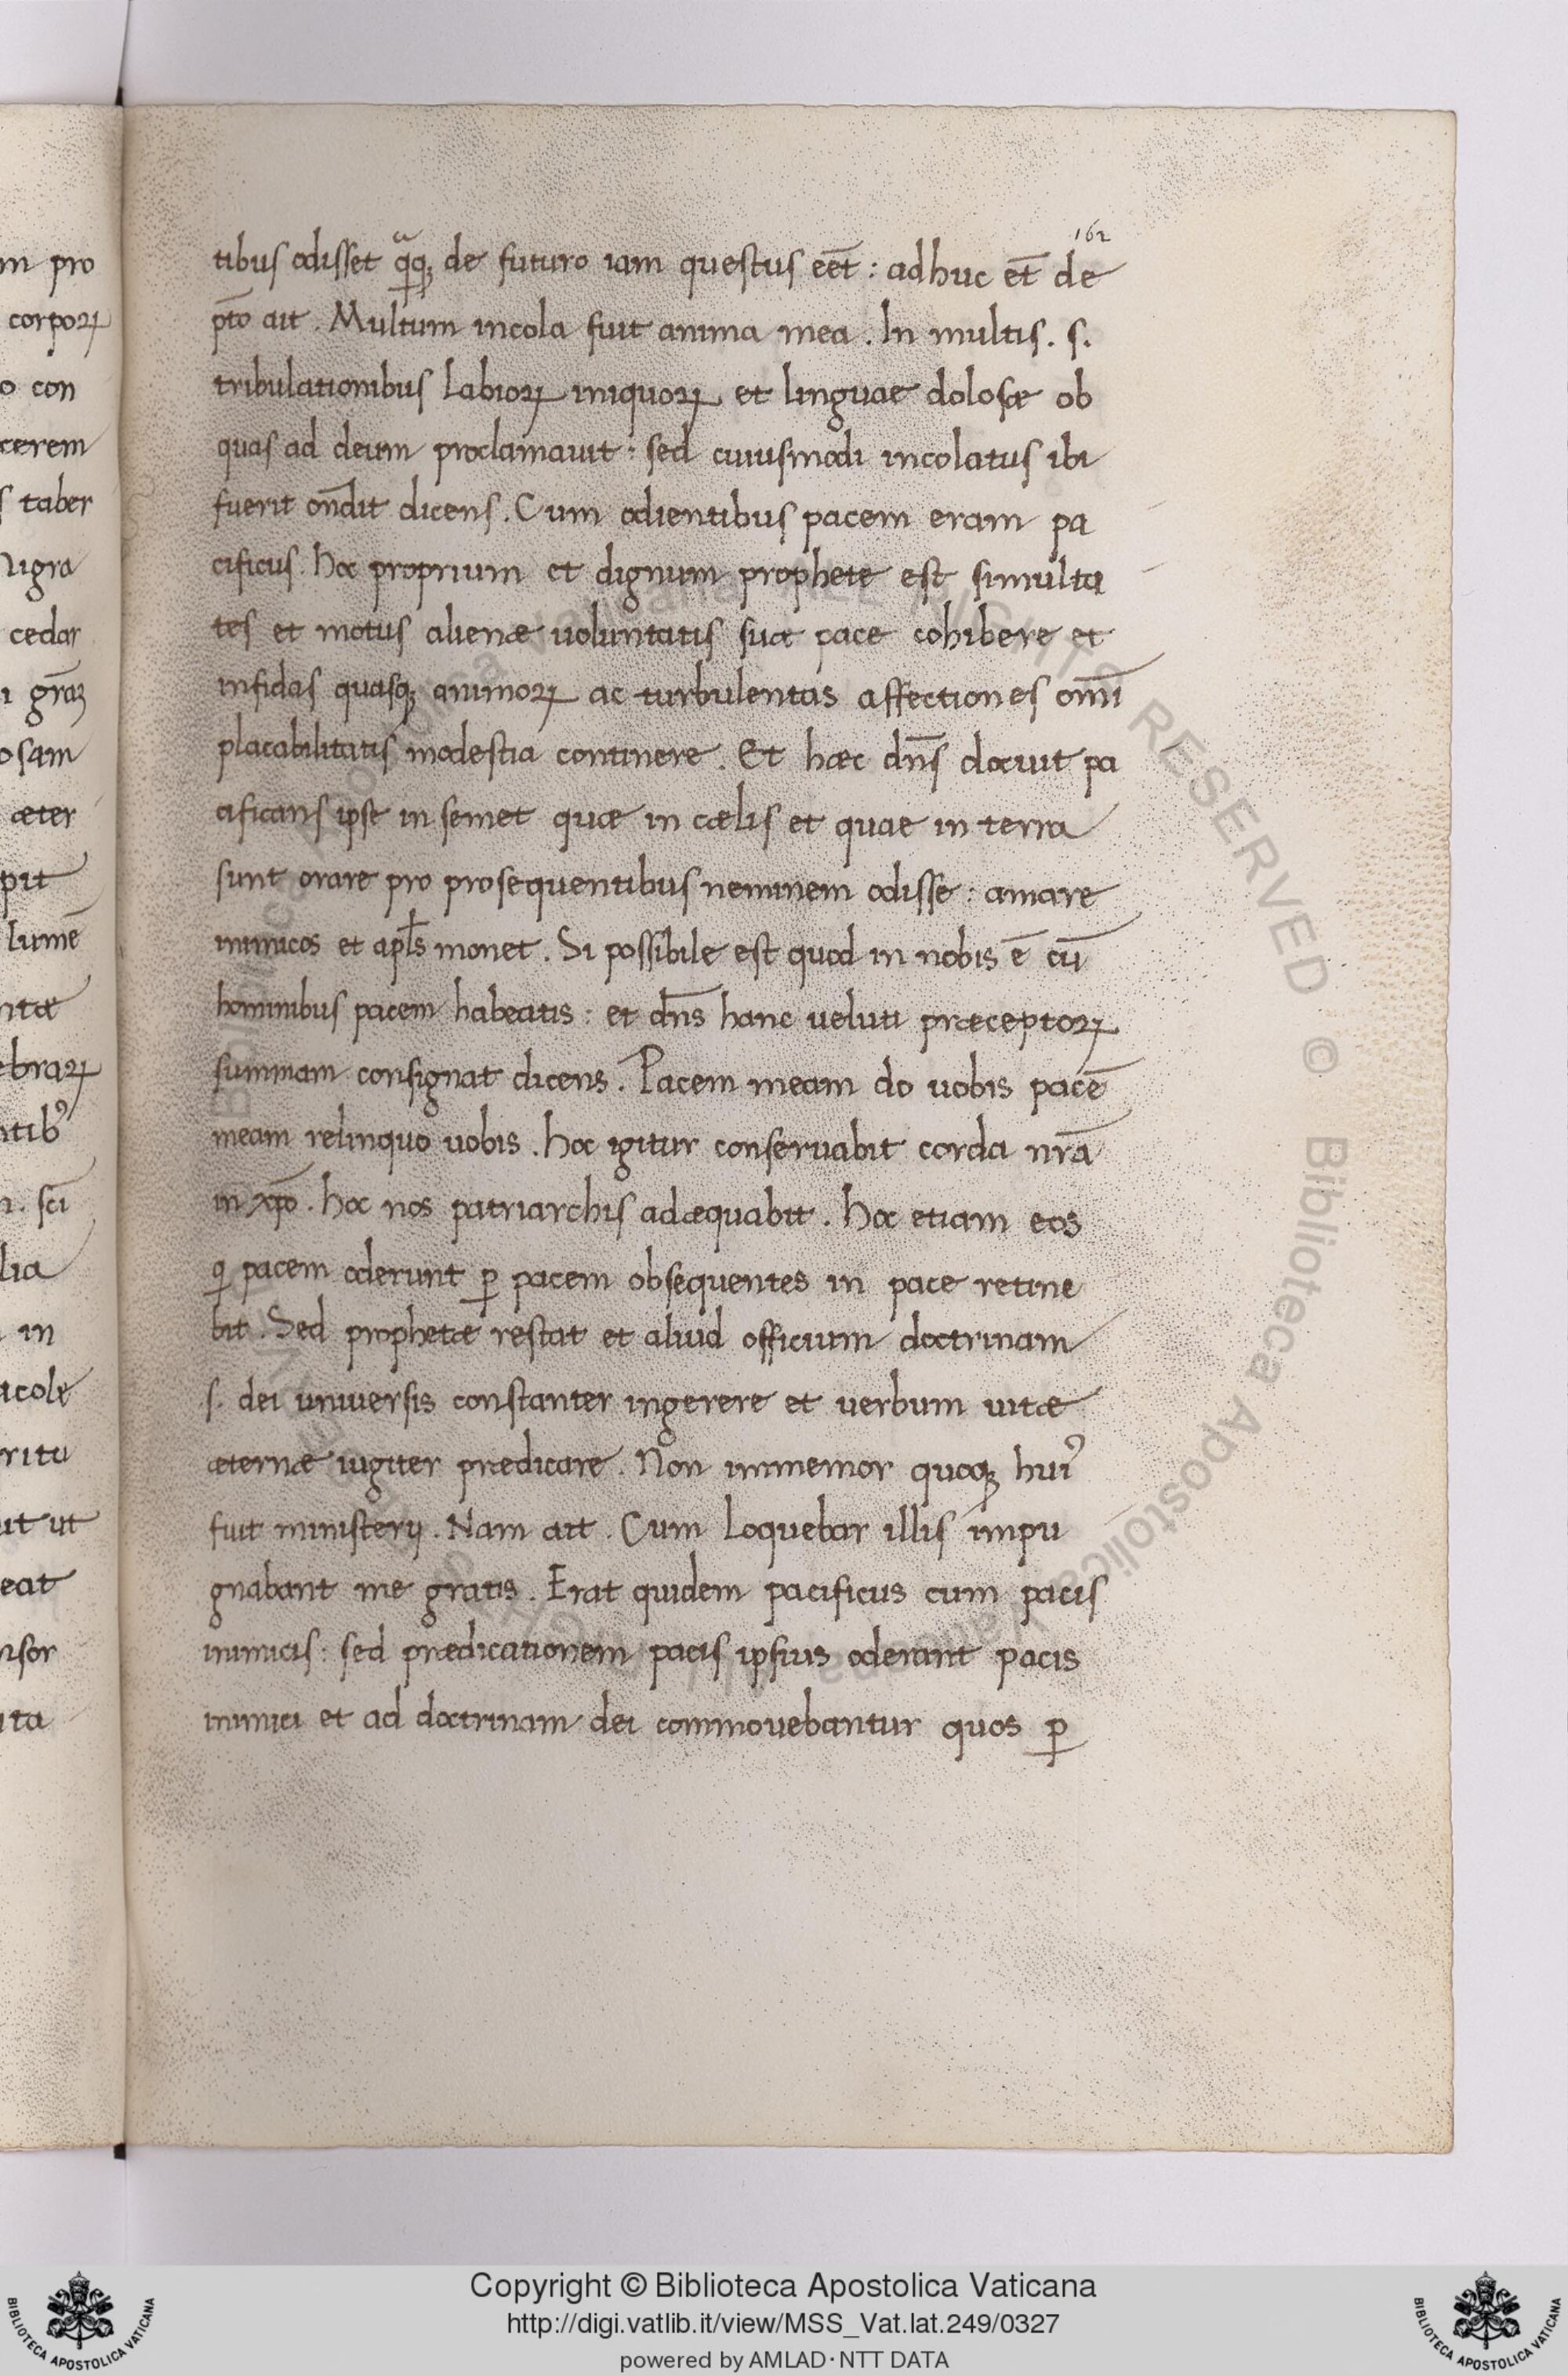 162
tibus odisset qͣq̃ꝫ de futuro iam questus eēt : adhuc et̄ de
p̄to ait . Multum incola fuit anima mea . In multis . s.
tribulationibus labioꝝ iniquoꝝ et linguae dolosæ ob
quas ad deum proclamauit : sed cuiusmodi incolatus ibi
fuerit on̄dit dicens . Cum odientibus pacem eram pa
cificus . hoc proprium et dignum prophete est simulta
tes et motus alienæ uoluntatis suæ pace cohibere et
infidas quasqꝫ animoꝝ ac turbulentas affectiones om̄i
placabilitatis modestia continere . Et hæc dn̄s docuit pa
cificans ipse in semet quæ in cælis et quae in terra
sunt orare pro prosequentibus neminem odisse : amare
inimicos et apl̄s monet . Si possibile est quod in nobis ē cū
hominibus pacem habeatis : et dn̄s hanc ueluti præceptoꝝ
summam consignat dicens . Pacem meam do uobis pacē
meam relinquo uobis . hoc igitur conseruabit corda nr̄a
in xp̄o . hoc nos patriarchis adæquabit . hoc etiam eos
q pacem oderunt ꝑ pacem obsequentes in pace retine
bit . Sed prophetæ restat et aliud officium doctrinam
s. dei universis constanter ingerere et uerbum uitæ
æternæ iugiter prædicare . Non immemor quoqꝫ huiꝰ
fuit ministerij . Nam ait . Cum loquebar illis impu
gnabant me gratis . Erat quidem pacificus cum pacis
inimicis : sed prædicationem pacis ipsius oderant pacis
inimici et ad doctrinam dei commouebantur quos ꝑ
m pro
corpoꝝ
o con
cerem
s taber
Nigra
cedar
i grãꝫ
osam
æter
pit
lumē
ntæ
ebraꝝ
ntibꝰ
n. sc̄i
lia
in
acole
ritu
ut ut
eat
nsor
ita
Copyright © Biblioteca Apostolica Vaticana
http://digi.vatlib.it/view/MSS_Vat.lat.249/0327
powered by AMLAD·NTT DATA
BIBLIOTECA APOSTOLICA VATICANA
BIBLIOTECA APOSTOLICA VATICANA